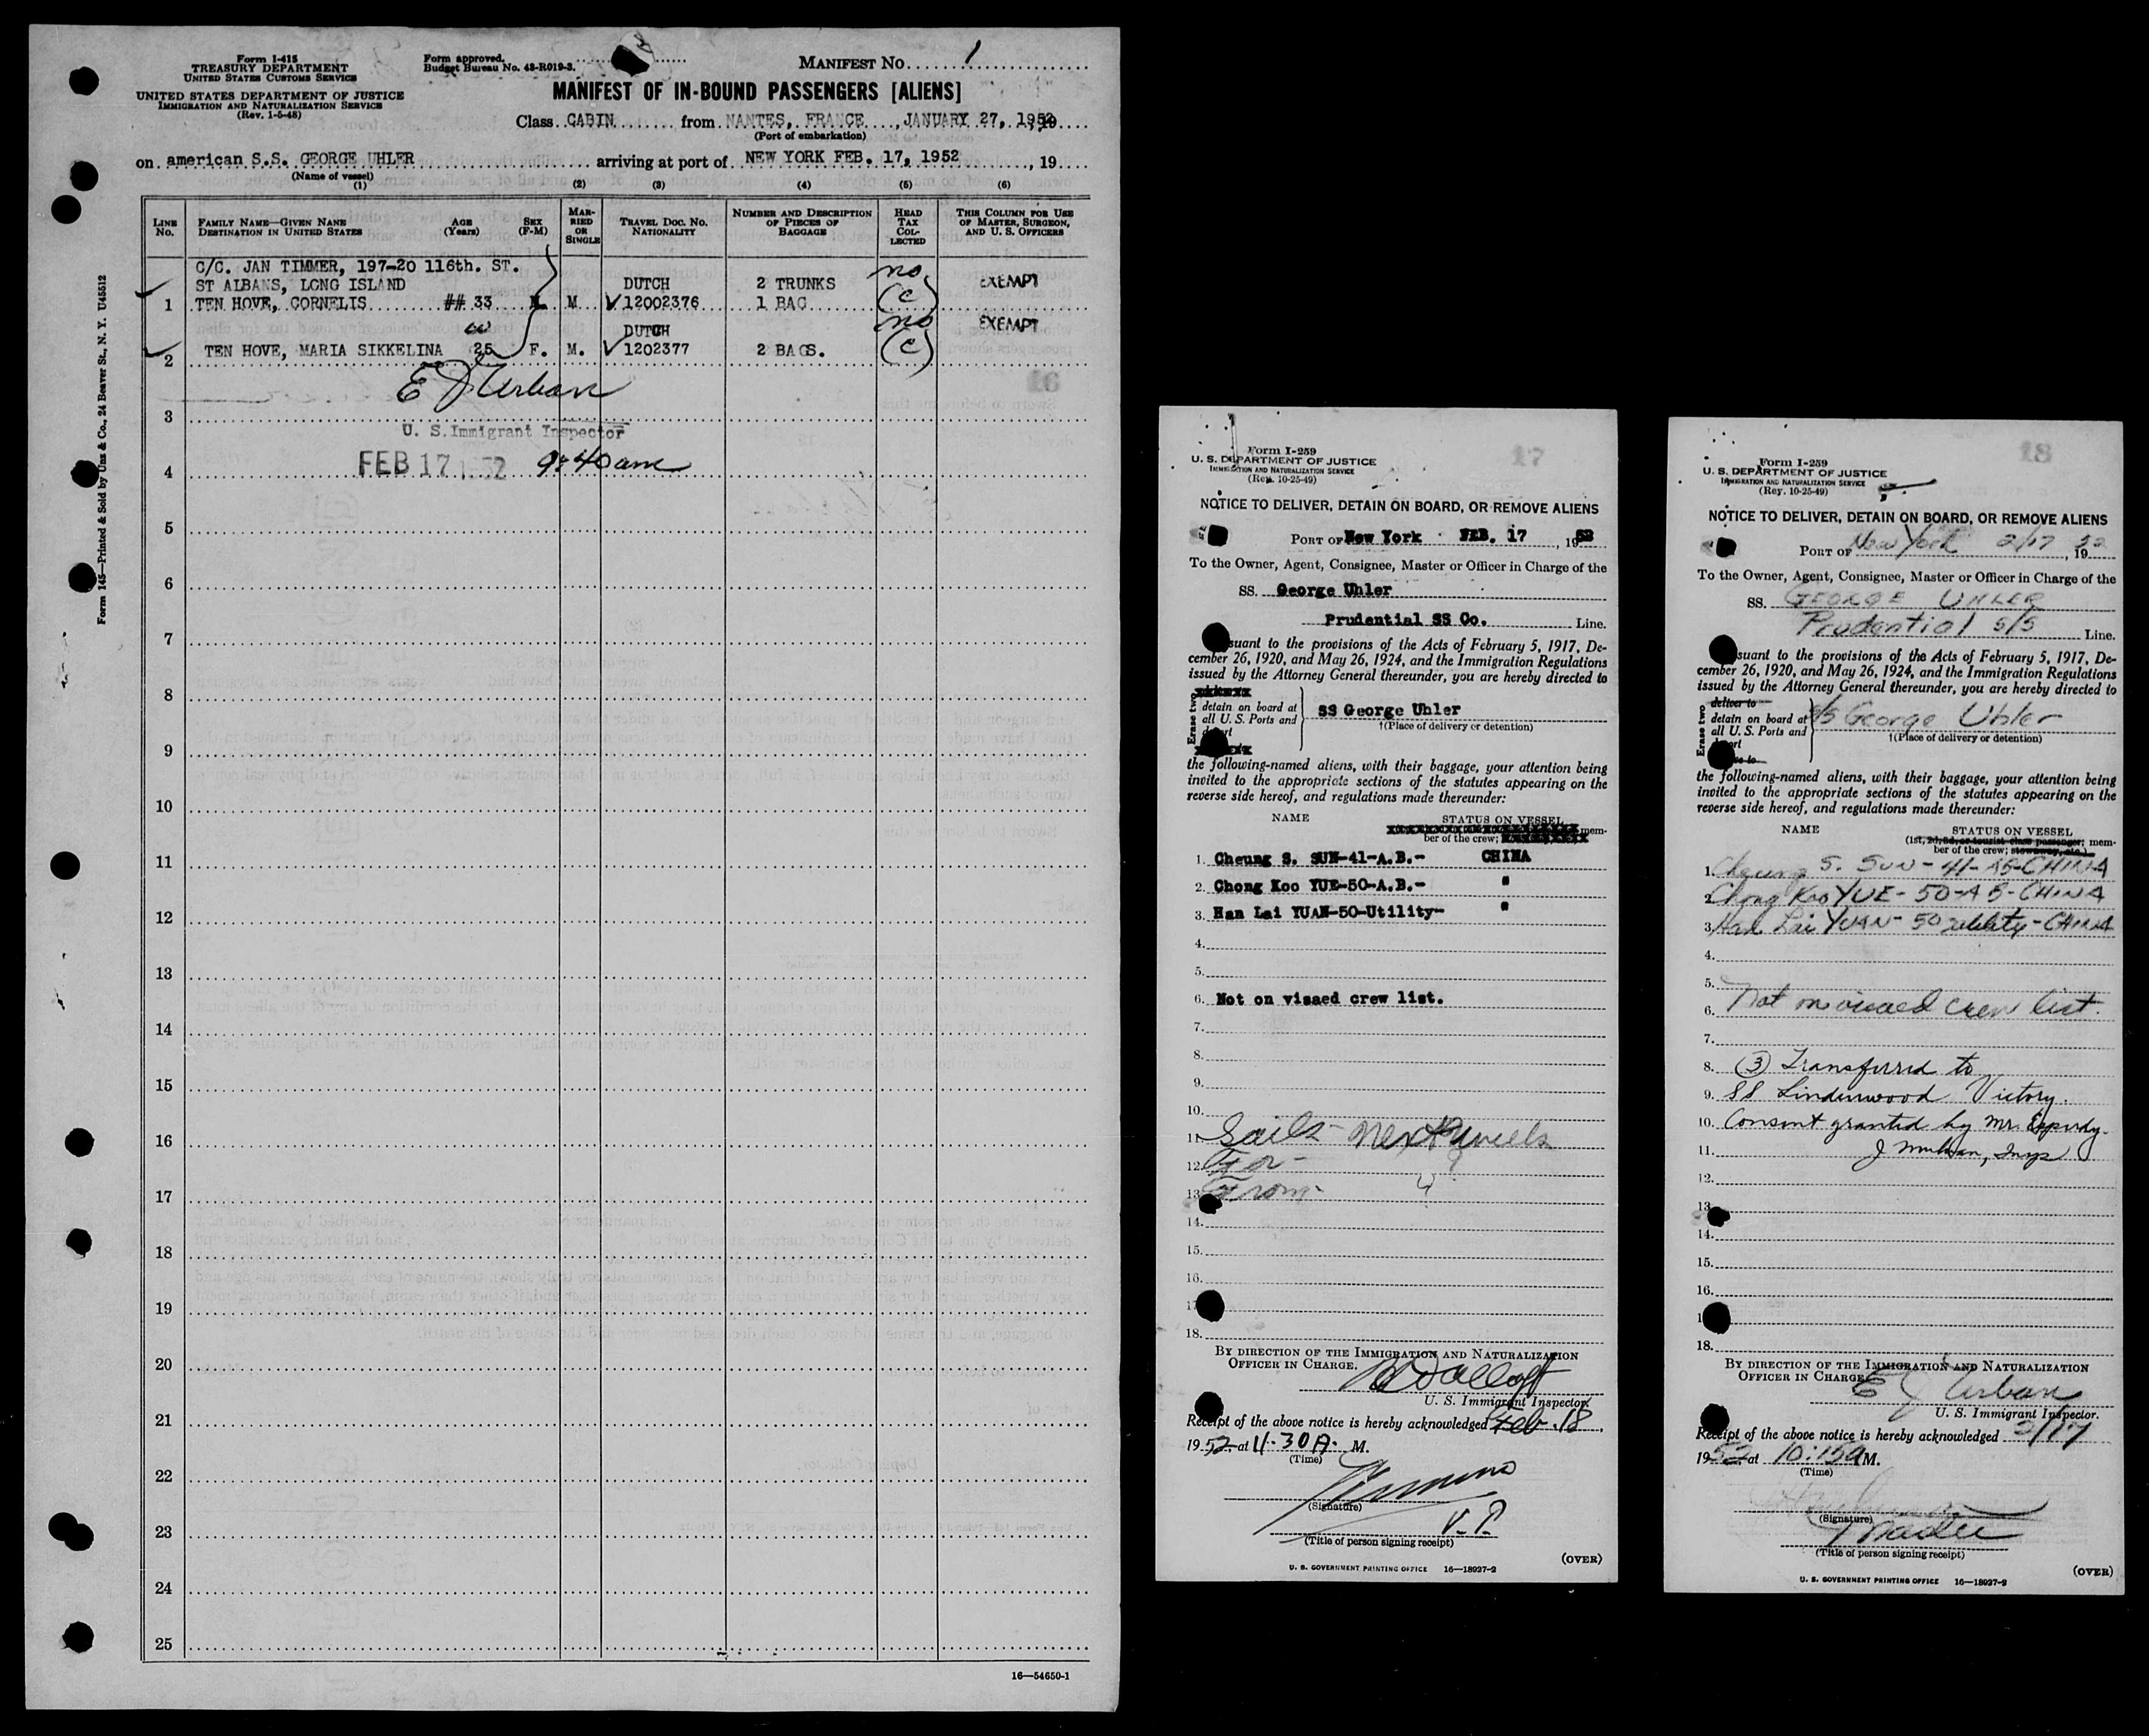 Form I-415
TREASURY DEPARTMENT
UNITED STATES CUSTOMS SERVICE
UNITED STATES DEPARTMENT OF JUSTICE
IMMIGRATION AND NATURALIZATION SERVICE
(Rev. 1-5-48)
Form approved.
Budget Bureau No. 43-R019-3.
MANIFEST No. 1
MANIFEST OF IN-BOUND PASSENGERS [ALIENS]
Class CABIN from NANTES, FRANCE, JANUARY 27, 1952, 19
(Port of embarkation)
on american S.S. GEORGE UHLER arriving at port of NEW YORK FEB. 17, 1952, 19
(Name of vessel)
(1) (2) (3) (4) (5) (6)
LINE No. FAMILY NAME—GIVEN NAME DESTINATION IN UNITED STATES AGE (Years) SEX (F-M) MARRIED OR SINGLE TRAVEL DOC. No. NATIONALITY NUMBER AND DESCRIPTION OF PIECES OF BAGGAGE HEAD TAX COLLECTED THIS COLUMN FOR USE OF MASTER, SURGEON, AND U. S. OFFICERS
C/C. JAN TIMMER, 197-20 116th. ST.
ST ALBANS, LONG ISLAND DUTCH 2 TRUNKS no EXEMPT
1 TEN HOVE, CORNELIS ## 33 M. M √ 12002376 1 BAG (c)
w DUTCH no EXEMPT
2 TEN HOVE, MARIA SIKKELINA 25 F. M. √ 1202377 2 BAGS. (c)
E J Urban
3
U. S. Immigrant Inspector
4 FEB 17 1952 9:40 am
5
6
7
8
9
10
11
12
13
14
15
16
17
18
19
20
21
22
23
24
25
16—54650-1
Form 145—Printed & Sold by Unz & Co., 24 Beaver St., N. Y. U45512
16
17
Form I-259
U. S. DEPARTMENT OF JUSTICE
IMMIGRATION AND NATURALIZATION SERVICE
(Rev. 10-25-49)
NOTICE TO DELIVER, DETAIN ON BOARD, OR REMOVE ALIENS
PORT OF New York FEB. 17, 1952
To the Owner, Agent, Consignee, Master or Officer in Charge of the
SS. George Uhler
Prudential SS Co. Line.
suant to the provisions of the Acts of February 5, 1917, De-
cember 26, 1920, and May 26, 1924, and the Immigration Regulations
issued by the Attorney General thereunder, you are hereby directed to
Erase two
detain on board at
all U.S. Ports and
SS George Uhler
†(Place of delivery or detention)
the following-named aliens, with their baggage, your attention being
invited to the appropriate sections of the statutes appearing on the
reverse side hereof, and regulations made thereunder:
NAME STATUS ON VESSEL
mem-
ber of the crew;
1. Cheung S. SUN-41-A.B.- CHINA
2. Chong Koo YUE-50-A.B.- "
3. Han Lai YUAN-50-Utility- "
4.
5.
6. Not on visaed crew list.
7.
8.
9.
10.
11. Sails— Next week
12. For—
13. From—
14.
15.
16.
17
18.
BY DIRECTION OF THE IMMIGRATION AND NATURALIZATION
OFFICER IN CHARGE.
U. S. Immigrant Inspector.
Receipt of the above notice is hereby acknowledged Feb. 18,
1952 at 11.30 A. M.
(Time)
(Signature)
V.P.
(Title of person signing receipt)
(OVER)
U. S. GOVERNMENT PRINTING OFFICE 16—18927-2
18
Form I-259
U. S. DEPARTMENT OF JUSTICE
IMMIGRATION AND NATURALIZATION SERVICE
(Rev. 10-25-49)
NOTICE TO DELIVER, DETAIN ON BOARD, OR REMOVE ALIENS
PORT OF New York 2/17, 1952
To the Owner, Agent, Consignee, Master or Officer in Charge of the
SS. GEORGE UHLER
Prudential S/S Line.
suant to the provisions of the Acts of February 5, 1917, De-
cember 26, 1920, and May 26, 1924, and the Immigration Regulations
issued by the Attorney General thereunder, you are hereby directed to
Erase two
deliver to
detain on board at
all U.S. Ports and
S/S George Uhler
†(Place of delivery or detention)
the following-named aliens, with their baggage, your attention being
invited to the appropriate sections of the statutes appearing on the
reverse side hereof, and regulations made thereunder:
NAME STATUS ON VESSEL
(1st, 2d, 3d, or tourist class passenger; mem-
ber of the crew; stowaway, etc.)
1. Cheung S. SUN - 41 - AB - CHINA
2. Chong Koo YUE - 50 - AB - CHINA
3. Han Lai YUAN - 50 utility - CHINA
4.
5.
6. Not on visaed crew list.
7.
8. (3) Transferred to
9. SS Lindenwood Victory.
10. Consent granted by Mr. Esperdy.
11. Insp
12.
13
14.
15.
16.
1
18.
BY DIRECTION OF THE IMMIGRATION AND NATURALIZATION
OFFICER IN CHARGE.
E J Urban
U. S. Immigrant Inspector.
Receipt of the above notice is hereby acknowledged 2/17
1952 at 10:15a M.
(Time)
(Signature)
Master
(Title of person signing receipt)
(OVER)
U. S. GOVERNMENT PRINTING OFFICE 16—18927-2